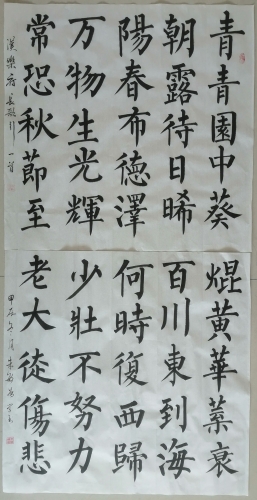 青青園中葵
朝露待日晞
陽春布德澤
万物生光輝
常恐秋節至
漢樂府長歌行一首
焜黃華葉衰
百川東到海
何時復西歸
少壯不努力
老大徒傷悲
甲辰年